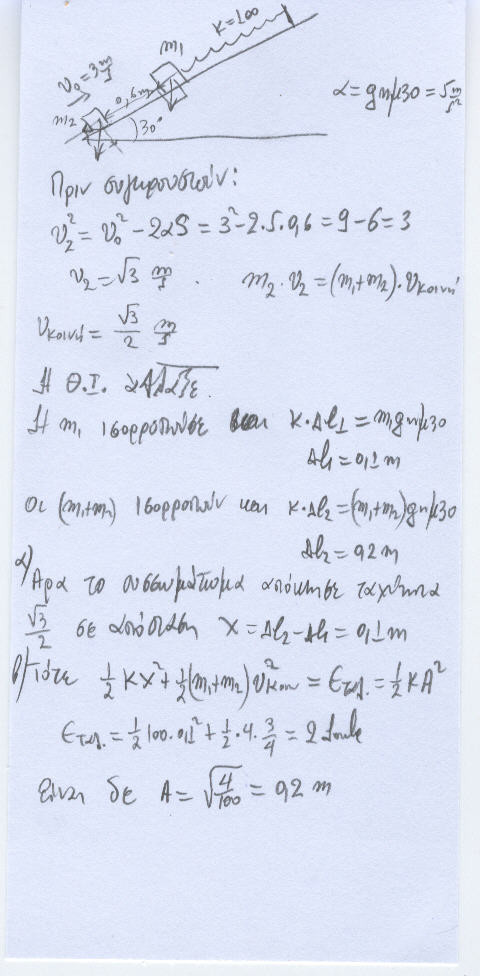 K=100
m1
υ₀=3 m/s
0,6m
m2
30°
α=gημ30=5 m/s²
Πριν συγκρουστούν:
υ₂²=υ₀²-2αS=3²-2.5.0,6=9-6=3
υ₂=√3 m/s . m₂.υ₂=(m₁+m₂).υκοινή
υκοινή=√3/2 m/s
Η Θ.Ι. άλλαξε.
Η m₁ ισορροπούσε και K.Δl₁=m₁gημ30
Δl₁=0,1m
Οι (m₁+m₂) ισορροπούν και K.Δl₂=(m₁+m₂)gημ30
Δl₂=0,2m
α) Άρα το συσσωμάτωμα απόκτησε ταχύτητα
√3/2 σε απόσταση X=Δl₂-Δl₁=0,1m
β) Τότε 1/2 KX²+1/2(m₁+m₂)υ²κοιν=Εταλ.=1/2KA²
Εταλ.=1/2 100.0,1²+1/2.4.3/4=2 Joule
Είναι δε A=√4/100=0,2 m